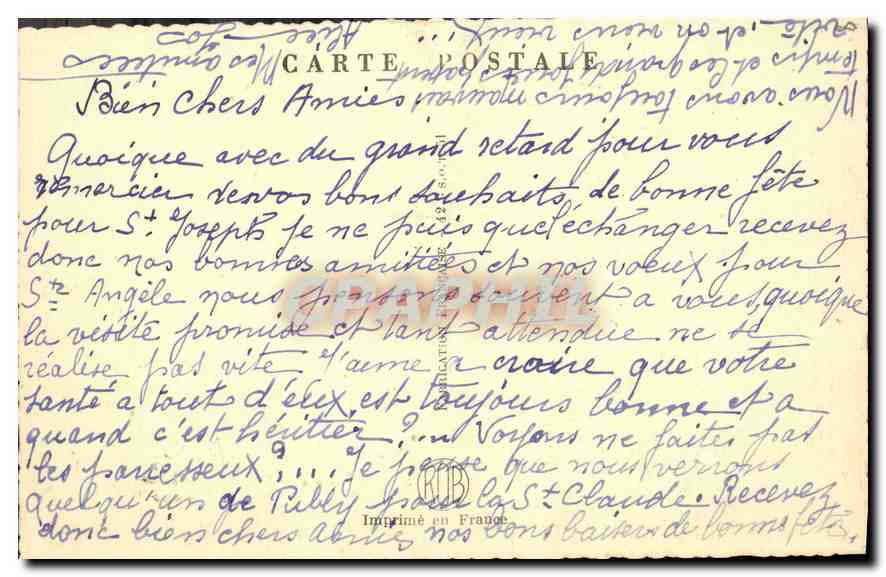 CARTE POSTALE
Bien chers Amies
Quoique avec du grand retard pour vous
remercier des vos bons souhaits de bonne fête
pour St. Joseph je ne puis que l'échanger recevez
donc nos bonnes amitiées et nos voeux pour
Ste Angèle nous pensons souvent a vous, quoique
la visite promise et tant attendue ne se
réalise pas vite J'aime a croire que votre
santé a tout d'eux est toujours bonne et a
quand c'est héritier? ... Voyons ne faites pas
les paresseux?... Je pense que nous verrons
quelqu'un de Publy pour la St Claude. Recevez
donc bien chers amies nos bons baisers de bonne fête.
Nous avons toujours mauvais
temps et les grands
et on nous vieux...
Mes amitiées
FABRICATION FRANÇAISE
RTB
Imprimé en France
CPAPHIL